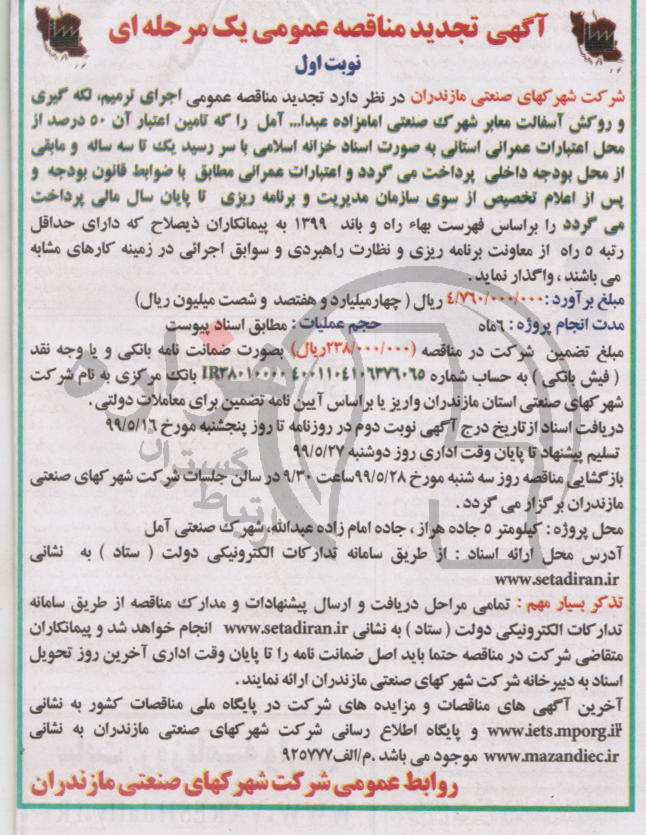 آگهی تجدید مناقصه عمومی یک مرحله ای
نوبت اول
شرکت شهرکهای صنعتی مازندران در نظر دارد تجدید مناقصه عمومی اجرای ترمیم، لکه گیری
و روکش آسفالت معابر شهرک صنعتی امامزاده عبدا... آمل را که تامین اعتبار آن ۵۰ درصد از
محل اعتبارات عمرانی استانی به صورت اسناد خزانه اسلامی با سر رسید یک تا سه ساله و مابقی
از محل بودجه داخلی پرداخت می گردد و اعتبارات عمرانی مطابق با ضوابط قانون بودجه و
پس از اعلام تخصیص از سوی سازمان مدیریت و برنامه ریزی تا پایان سال مالی پرداخت
می گردد را براساس فهرست بهاء راه و باند ۱۳۹۹ به پیمانکاران ذیصلاح که دارای حداقل
رتبه ۵ راه از معاونت برنامه ریزی و نظارت راهبردی و سوابق اجرائی در زمینه کارهای مشابه
می باشند، واگذار نماید.
مبلغ برآورد: ۴/۷۶۰/۰۰۰/۰۰۰ ریال ( چهارمیلیارد و هفتصد و شصت میلیون ریال)
مدت انجام پروژه : ۶ماه حجم عملیات : مطابق اسناد پیوست
مبلغ تضمین شرکت در مناقصه (۲۳۸/۰۰۰/۰۰۰ریال) بصورت ضمانت نامه بانکی و یا وجه نقد
( فیش بانکی ) به حساب شماره IR۳۸۰۱۰۰۰۰۴۰۰۱۱۰۴۱۰۶۳۷۶۰۶۵ بانک مرکزی به نام شرکت
شهرکهای صنعتی استان مازندران واریز یا براساس آیین نامه تضمین برای معاملات دولتی.
دریافت اسناد از تاریخ درج آگهی نوبت دوم در روزنامه تا روز پنجشنبه مورخ ۹۹/۵/۱۶
تسلیم پیشنهاد تا پایان وقت اداری روز دوشنبه ۹۹/۵/۲۷
بازگشایی مناقصه روز سه شنبه مورخ ۹۹/۵/۲۸ساعت ۹/۳۰ در سالن جلسات شرکت شهرکهای صنعتی
مازندران برگزار می گردد .
محل پروژه : کیلومتر ۵ جاده هراز ، جاده امام زاده عبدالله، شهرک صنعتی آمل
آدرس محل ارائه اسناد : از طریق سامانه تدارکات الکترونیکی دولت ( ستاد ) به نشانی
www.setadiran.ir
تذکر بسیار مهم : تمامی مراحل دریافت و ارسال پیشنهادات و مدارک مناقصه از طریق سامانه
تدارکات الکترونیکی دولت ( ستاد ) به نشانی www.setadiran.ir انجام خواهد شد و پیمانکاران
متقاضی شرکت در مناقصه حتما باید اصل ضمانت نامه را تا پایان وقت اداری آخرین روز تحویل
اسناد به دبیرخانه شرکت شهرکهای صنعتی مازندران ارائه نمایند.
آخرین آگهی های مناقصات و مزایده های شرکت در پایگاه ملی مناقصات کشور به نشانی
www.iets.mporg.ir و پایگاه اطلاع رسانی شرکت شهرکهای صنعتی مازندران به نشانی
www.mazandiec.ir موجود می باشد .م/الف۹۲۵۷۷۷
روابط عمومی شرکت شهرکهای صنعتی مازندران
هزاره
گستران
ارتباط